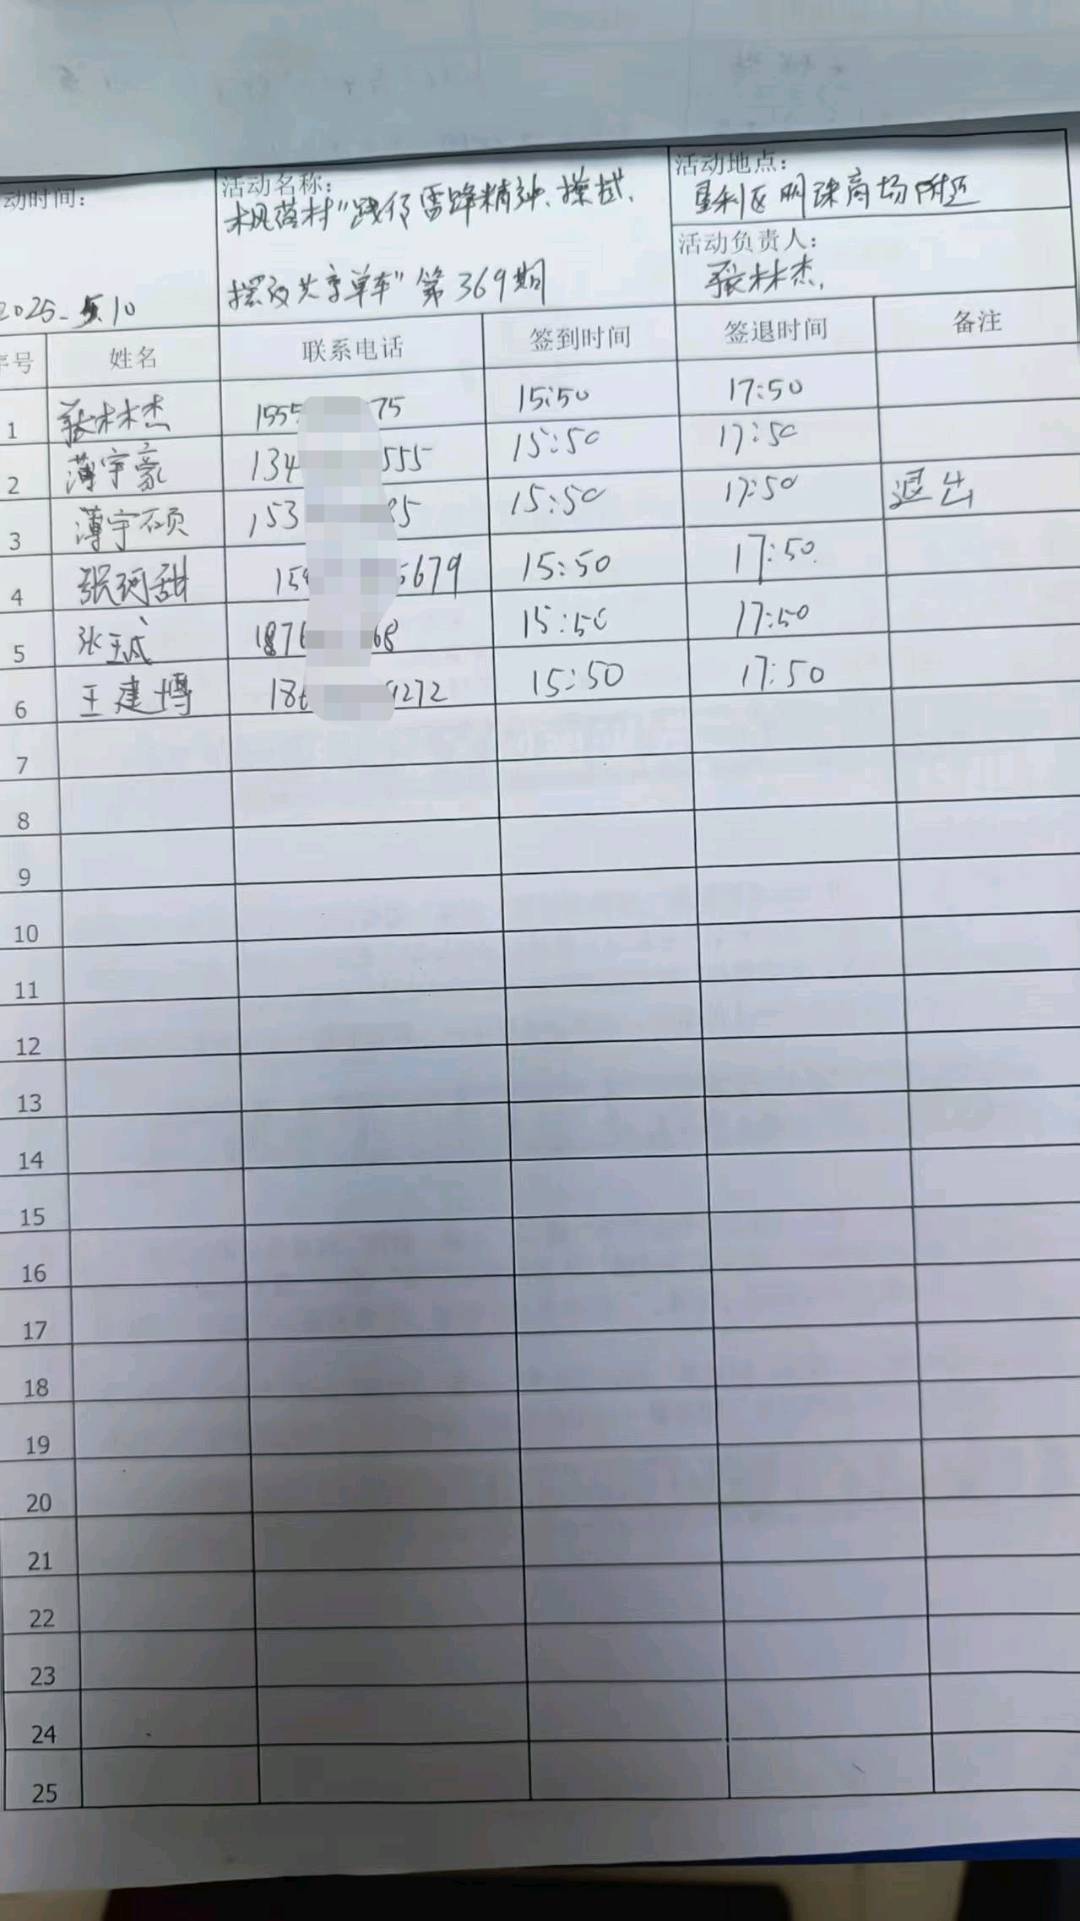 动时间：
活动名称：
活动地点：
枫落村"践行雷锋精神、擦拭、
垦利区明珠商场附近
活动负责人：
摆放共享单车"第369期
张林杰
2025.5.10
序号 姓名 联系电话 签到时间 签退时间 备注
1 张林杰 1555 75 15:50 17:50
2 薄宇豪 134 555 15:50 17:50
3 薄宇硕 153 35 15:50 17:50 退出
4 张珂甜 159 5679 15:50 17:50
5 张 1876 68 15:50 17:50
6 王建博 186 9272 15:50 17:50
7
8
9
10
11
12
13
14
15
16
17
18
19
20
21
22
23
24
25